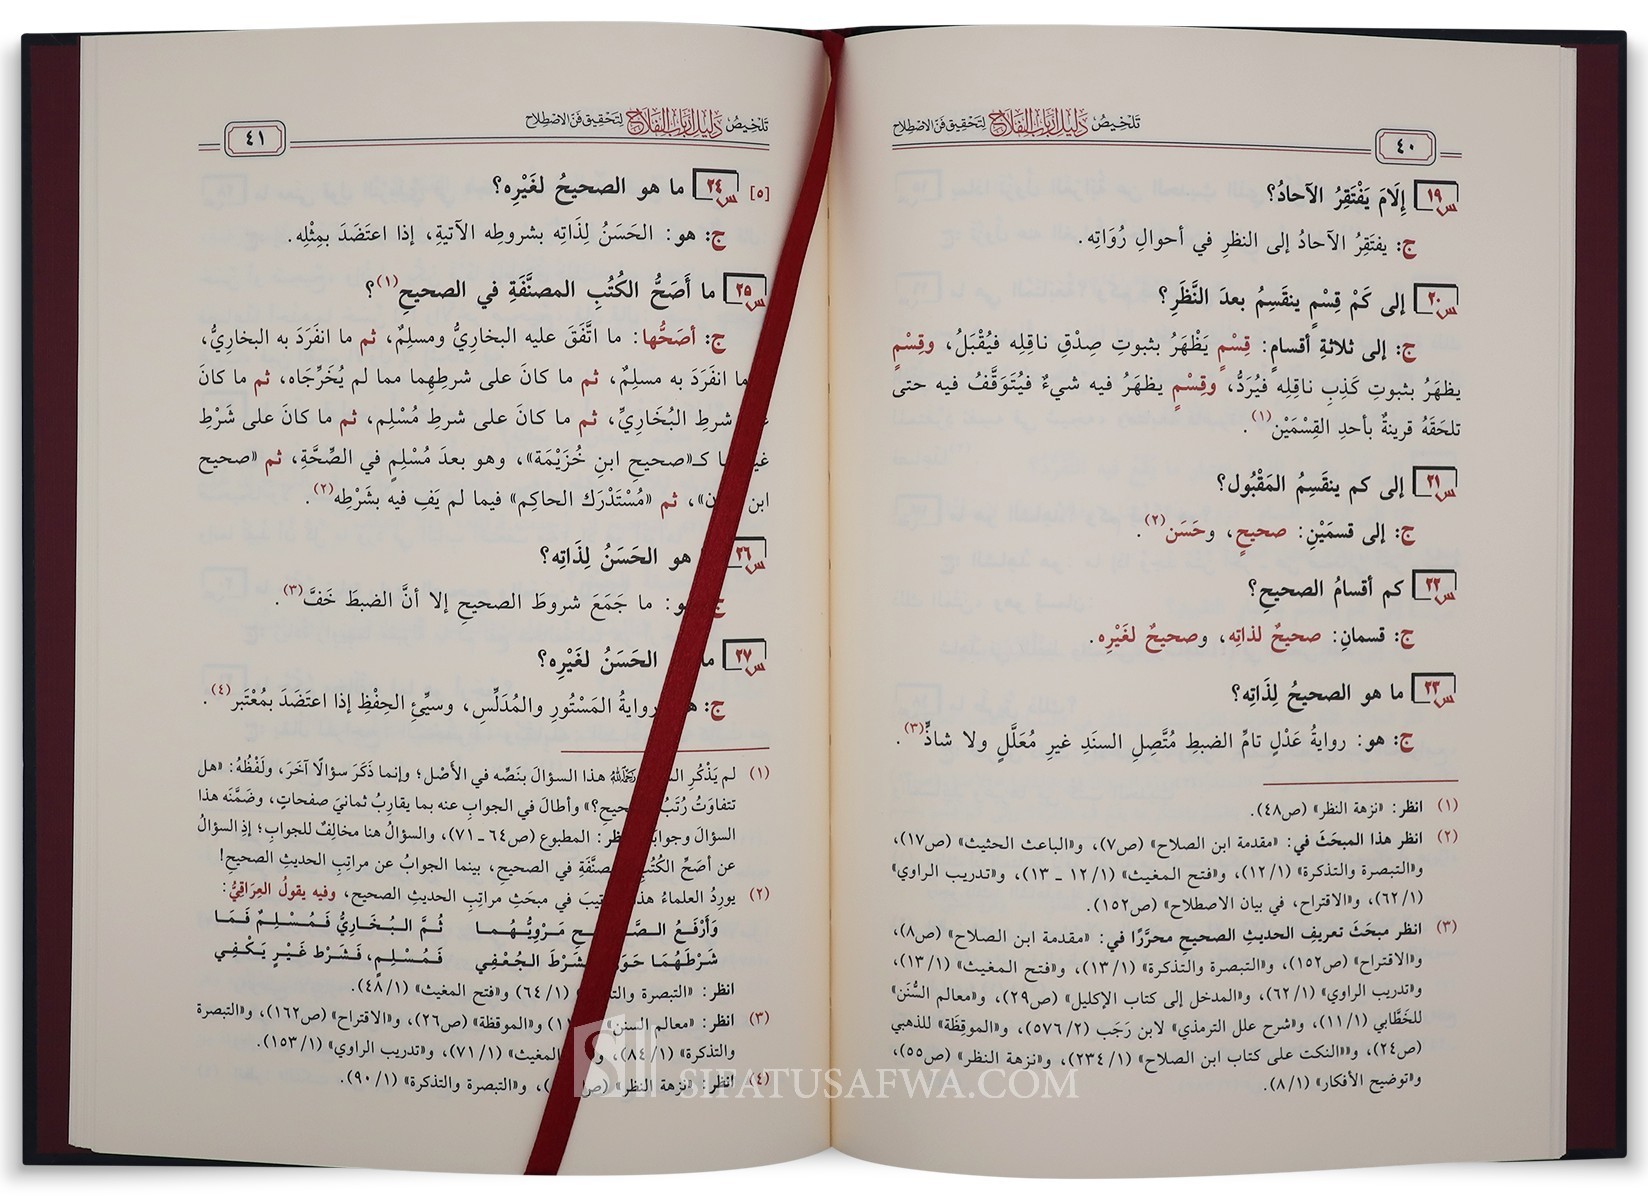 تَلْخِيصُ دَلِيلِ أَرْبَابِ الفَلَاحِ لِتَحْقِيقِ فَنِّ الاصْطِلَاحِ
٤٠
س١٩ إِلَامَ يَفْتَقِرُ الآحادُ؟
ج: يفتَقِرُ الآحادُ إلى النظرِ في أحوالِ رُوَاتِه.
س٢٠ إلى كَمْ قِسْمٍ ينقَسِمُ بعدَ النَّظَرِ؟
ج: إلى ثلاثةِ أقسامٍ: قِسْمٍ يَظْهَرُ بثبوتِ صِدْقِ ناقِلِه فيُقْبَلُ، وقِسْمٍ
يظهَرُ بثبوتِ كَذِبِ ناقِلِه فيُرَدُّ، وقِسْمٍ يظهَرُ فيه شيءٌ فيُتَوَقَّفُ فيه حتى
تلحَقَهُ قرينةٌ بأحدِ القِسْمَيْن(١).
س٢١ إلى كم ينقَسِمُ المَقْبُول؟
ج: إلى قسمَيْنِ: صحيحٍ، وحَسَن(٢).
س٢٢ كم أقسامُ الصحيحِ؟
ج: قسمانِ: صحيحٌ لذاتِه، وصحيحٌ لغَيْرِه.
س٢٣ ما هو الصحيحُ لِذَاتِه؟
ج: هو: روايةُ عَدْلٍ تامِّ الضبطِ مُتَّصِلِ السنَدِ غيرِ مُعَلَّلٍ ولا شاذٍّ(٣).
(١) انظر: «نزهة النظر» (ص٤٨).
(٢) انظر هذا المبحَثَ في: «مقدمة ابن الصلاح» (ص٧)، و«الباعث الحثيث» (ص١٧)،
و«التبصرة والتذكرة» (١٢/١)، و«فتح المغيث» (١٢/١ ـ ١٣)، و«تدريب الراوي»
(٦٢/١)، و«الاقتراح، في بيان الاصطلاح» (ص١٥٢).
(٣) انظر مبحَثَ تعريفِ الحديثِ الصحيحِ محرَّرًا في: «مقدمة ابن الصلاح» (ص٨)،
و«الاقتراح» (ص١٥٢)، و«التبصرة والتذكرة» (١٣/١)، و«فتح المغيث» (١٣/١)،
و«تدريب الراوي» (٦٢/١)، و«المدخل إلى كتاب الإكليل» (ص٢٩)، و«معالم السُّنَن»
للخَطَّابي (١١/١)، و«شرح علل الترمذي» لابن رَجَب (٥٧٦/٢)، و«الموقِظَة» للذهبي
(ص٢٤)، و«النكت على كتاب ابن الصلاح» (٢٣٤/١)، و«نزهة النظر» (ص٥٥)،
و«توضيح الأفكار» (٨/١).
تَلْخِيصُ دَلِيلِ أَرْبَابِ الفَلَاحِ لِتَحْقِيقِ فَنِّ الاصْطِلَاحِ
٤١
[٥] س٢٤ ما هو الصحيحُ لغَيْرِه؟
ج: هو: الحَسَنُ لِذَاتِه بشروطِه الآتيةِ، إذا اعتَضَدَ بمِثْلِه.
س٢٥ ما أَصَحُّ الكُتُبِ المصنَّفَةِ في الصحيحِ(١)؟
ج: أصَحُّها: ما اتَّفَقَ عليه البخاريُّ ومسلِمٌ، ثم ما انفَرَدَ به البخاريُّ،
ما انفَرَدَ به مسلِمٌ، ثم ما كانَ على شرطِهِما مما لم يُخَرِّجَاه، ثم ما كانَ
شرطِ البُخَارِيِّ، ثم ما كانَ على شرطِ مُسْلِم، ثم ما كانَ على شَرْطِ
كـ«صحيحِ ابنِ خُزَيْمَة»، وهو بعدَ مُسْلِمٍ في الصِّحَّةِ، ثم «صحيح
ابن ن»، ثم «مُسْتَدْرَك الحاكِم» فيما لم يَفِ فيه بشَرْطِه(٢).
س٢٦ هو الحَسَنُ لِذَاتِه؟
ج: هو: ما جَمَعَ شروطَ الصحيحِ إلا أنَّ الضبطَ خَفَّ(٣).
س٢٧ ما الحَسَنُ لغَيْرِه؟
ج: روايةُ المَسْتُورِ والمُدَلِّسِ، وسيِّئِ الحِفْظِ إذا اعتَضَدَ بمُعْتَبر(٤).
(١) لم يَذْكُرِ رَحِمَهُ اللهُ هذا السؤالَ بنَصِّه في الأصْل؛ وإنما ذَكَرَ سؤالًا آخَرَ، ولَفْظُهُ: «هل
تتفاوَتُ رُتَبُ الصحيحِ؟» وأطالَ في الجوابِ عنه بما يقارِبُ ثمانيَ صفحاتٍ، وضَمَّنَه هذا
السؤالَ وجوابَه انظر: المطبوع (ص٦٤ ـ ٧١)، والسؤالُ هنا مخالِفٌ للجوابِ؛ إذِ السؤالُ
عن أصَحِّ الكُتُبِ المصنَّفَةِ في الصحيحِ، بينما الجوابُ عن مراتِبِ الحديثِ الصحيحِ!
(٢) يورِدُ العلماءُ هذا تيبَ في مبحَثِ مراتِبِ الحديثِ الصحيح، وفيه يقولُ العِرَاقِيُّ:
وَأَرْفَعُ الصَّحِيحِ مَرْوِيُّهُمَا ثُمَّ البُخَارِيُّ فَمُسْلِمٌ فَمَا
شَرْطَهُمَا حَوَى فَشَرْطَ الجُعْفِي فَمُسْلِمٍ، فَشَرْط غَيْرٍ يَكْفِي
انظر: «التبصرة والتذكرة» (٦٤/١) و«فتح المغيث» (٤٨/١).
(٣) انظر: «معالم السنن» و«الموقظة» (ص٢٦)، و«الاقتراح» (ص١٦٢)، و«التبصرة
والتذكرة» (٨٤/١)، المغيث» (٧١/١)، و«تدريب الراوي» (١٥٣/١).
(٤) انظر: «نزهة النظر» ، و«التبصرة والتذكرة» (٩٠/١).
SIFATUSAFWA.COM